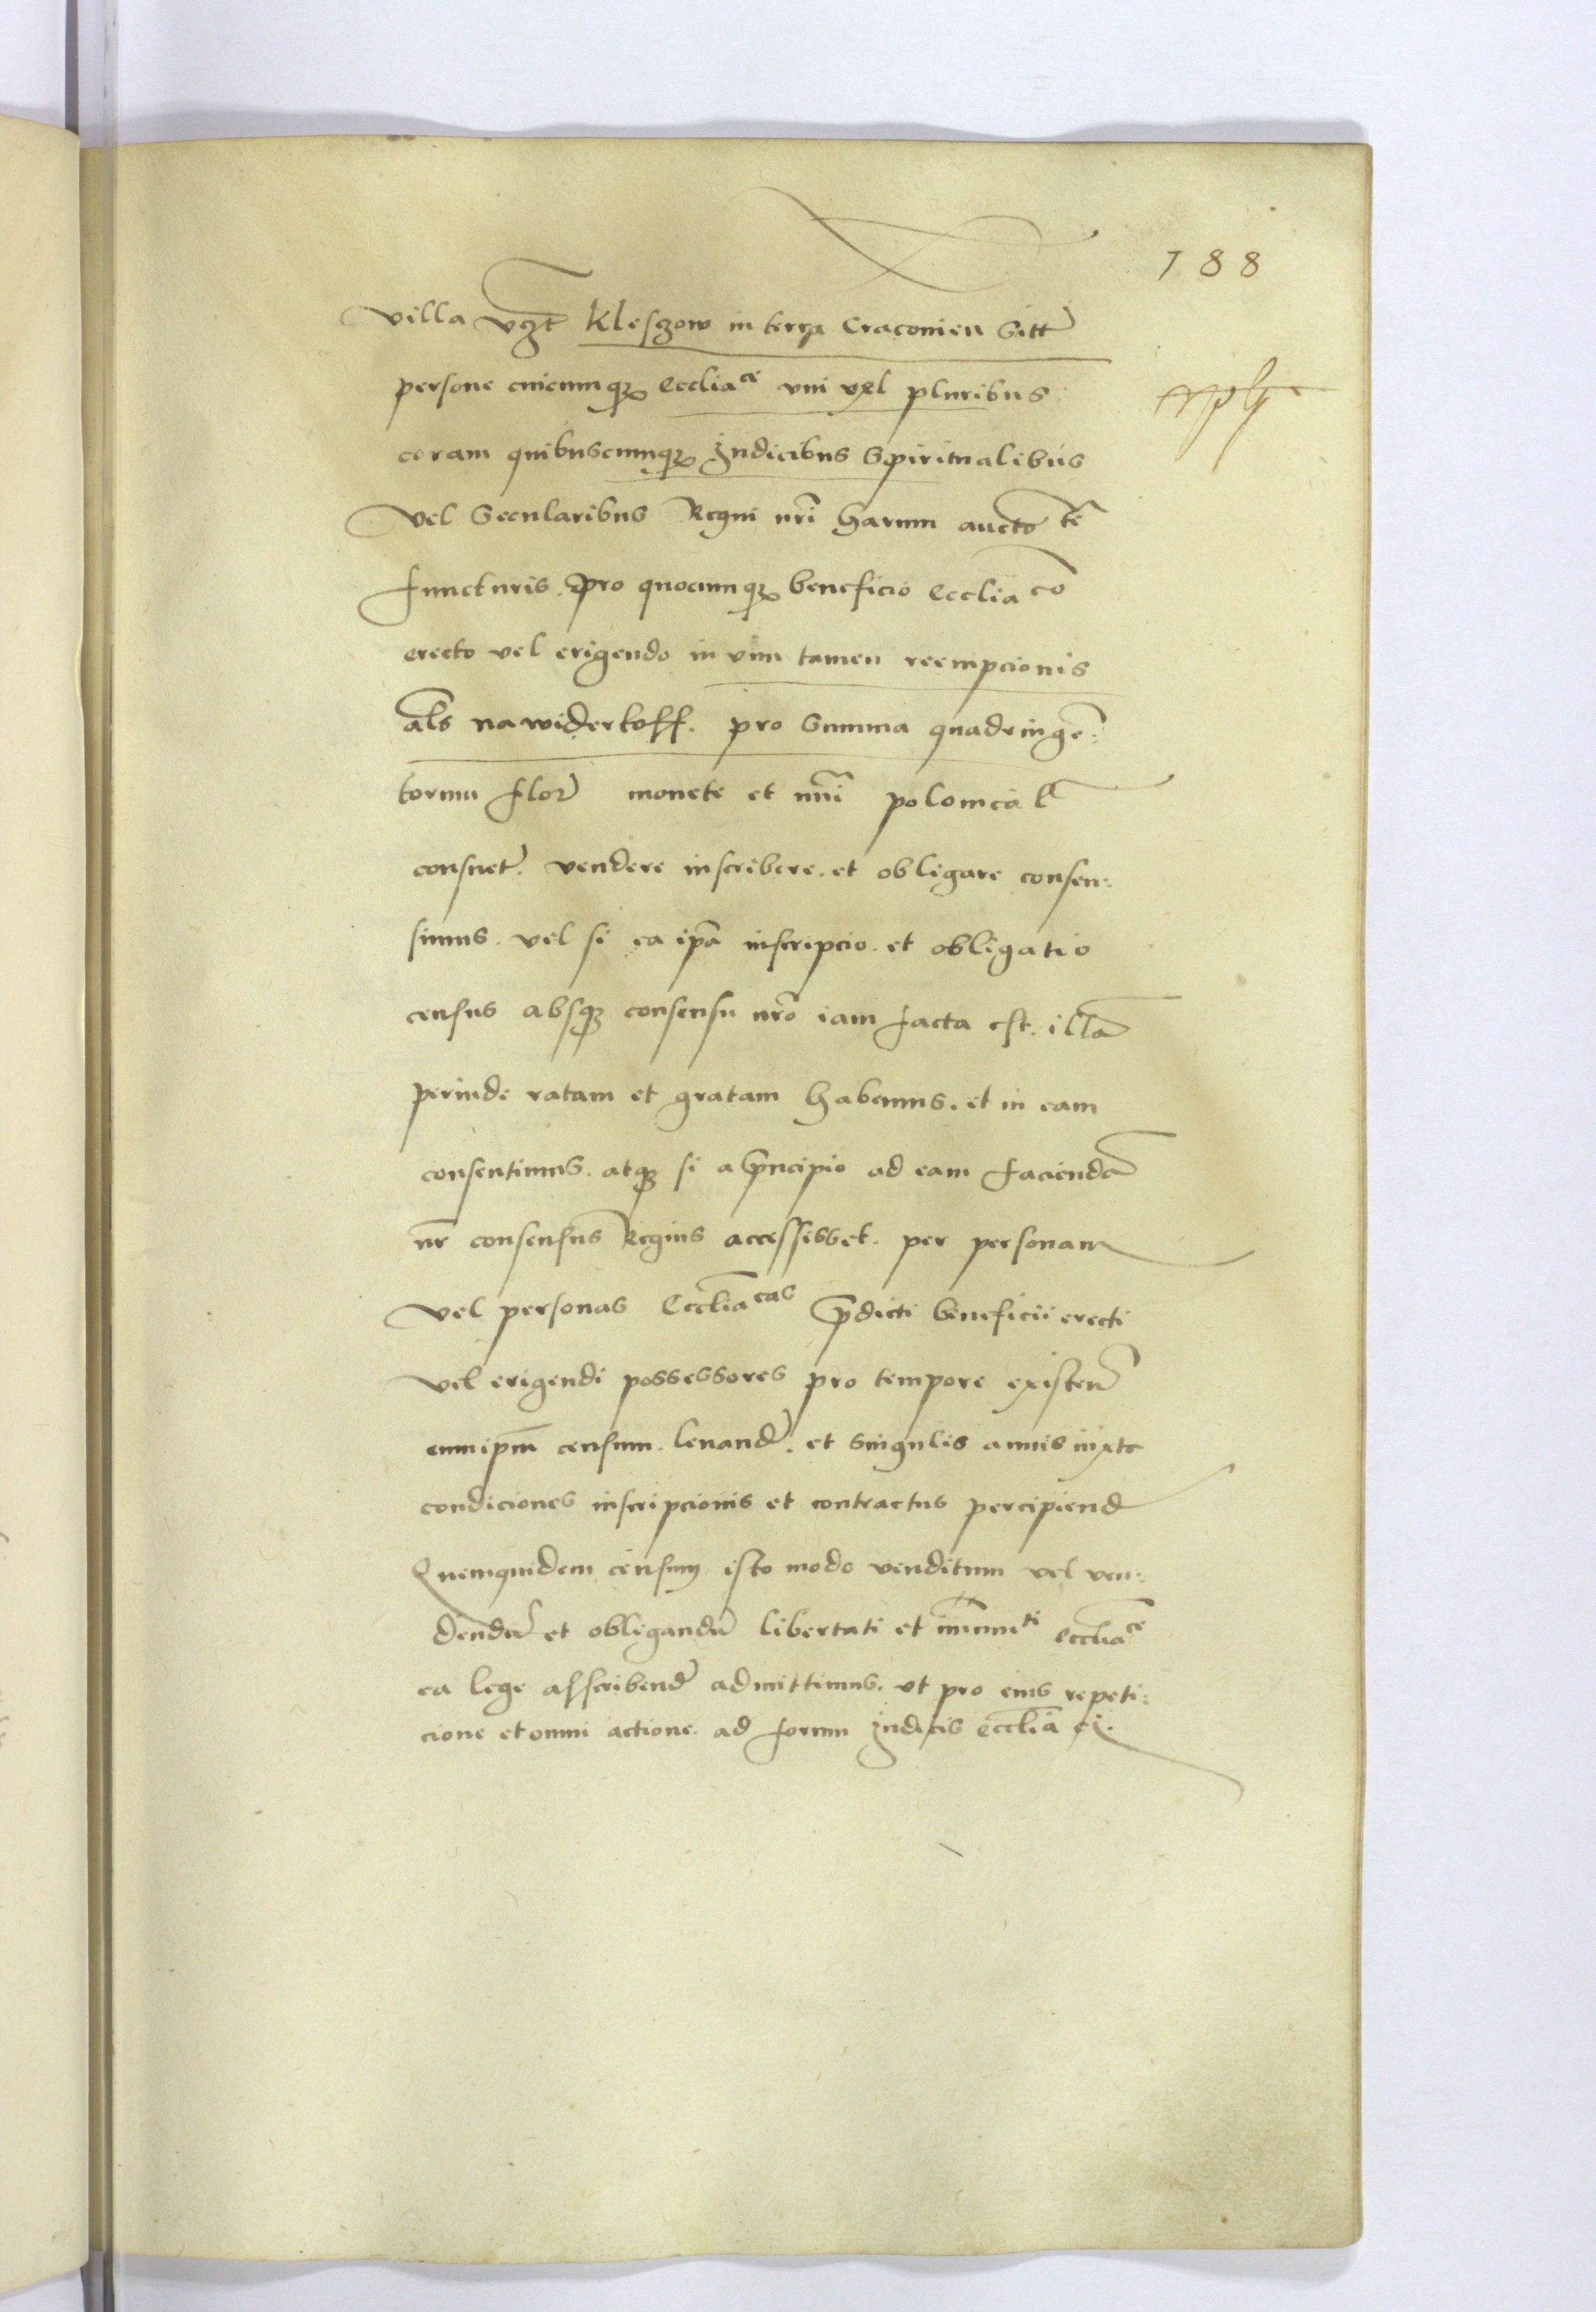 188
villa vczt Kleszow in terra Cracouien Sitt
persone cuicumqz Eccliace vni vel pluribus
coram quibuscumqz Judicibus Spiritualibus
vel Secularibus Regni nri harum auctote
functuris. pro quocumqz beneficio Ecclia co
erecto vel erigendo in vim tamen reempcionis
als na widerkoff. pro Summa quadringe:
torum flor monete et nui polonical
consuet. vendere inscribere. et obligare consen:
simus. vel si ea ipa inscripcio. et obligatio
census absqz consensu nro iam facta est. illa
perinde ratam et gratam habemus. et in eam
consentimus. atqz si a principio ad eam faciendã
nr consensus Regius accessisset. per personam
vel personas Eccliacas pdicti beneficii erecti
vel erigendi possessores pro tempore existen
eum ipm censum. leuand. et Singulis annis iuxta
condiciones inscripcionis et contractus percipiend
Quemquidem censum isto modo venditum vel ven:
dendu et obligandu libertati et immuniti eccliace
ea lege asscribend admittimus. vt pro eius repeti:
cione et omni actione. ad forum Judicis ecclia ci.